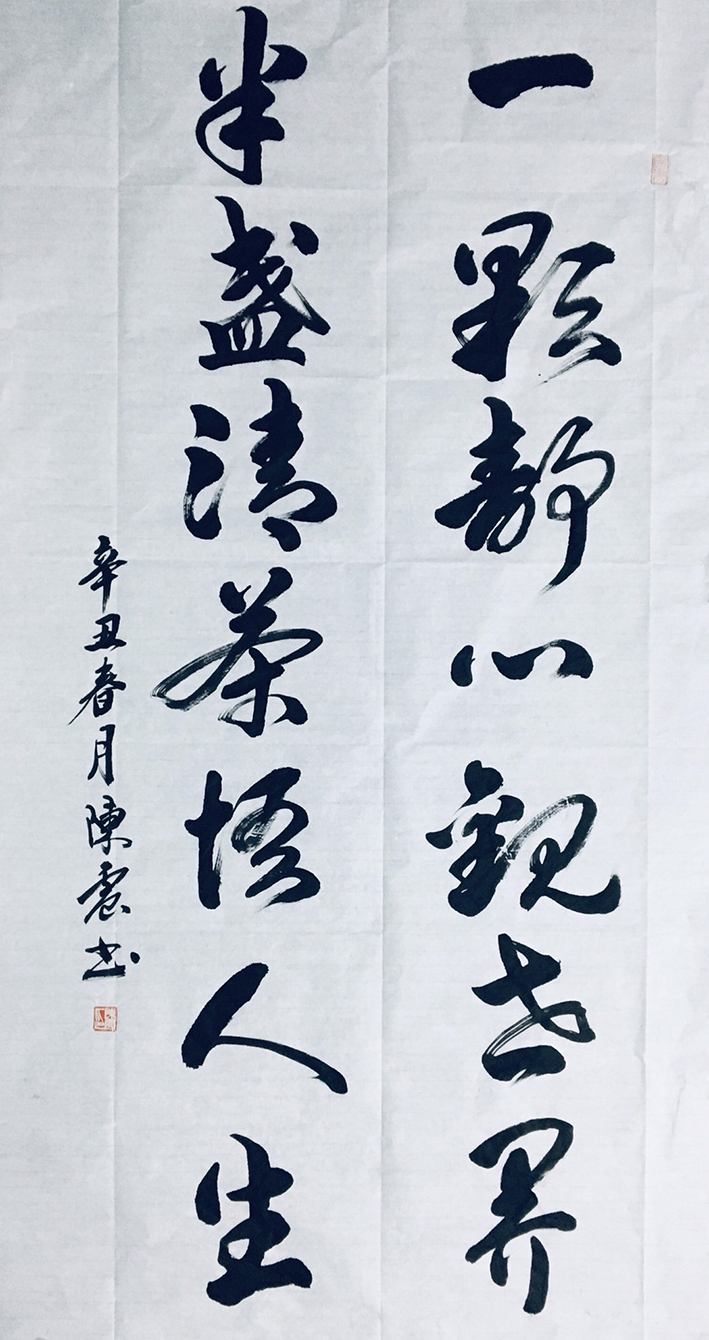 一颗静心觀世界
半盏清茶悟人生
辛丑春月陳震书